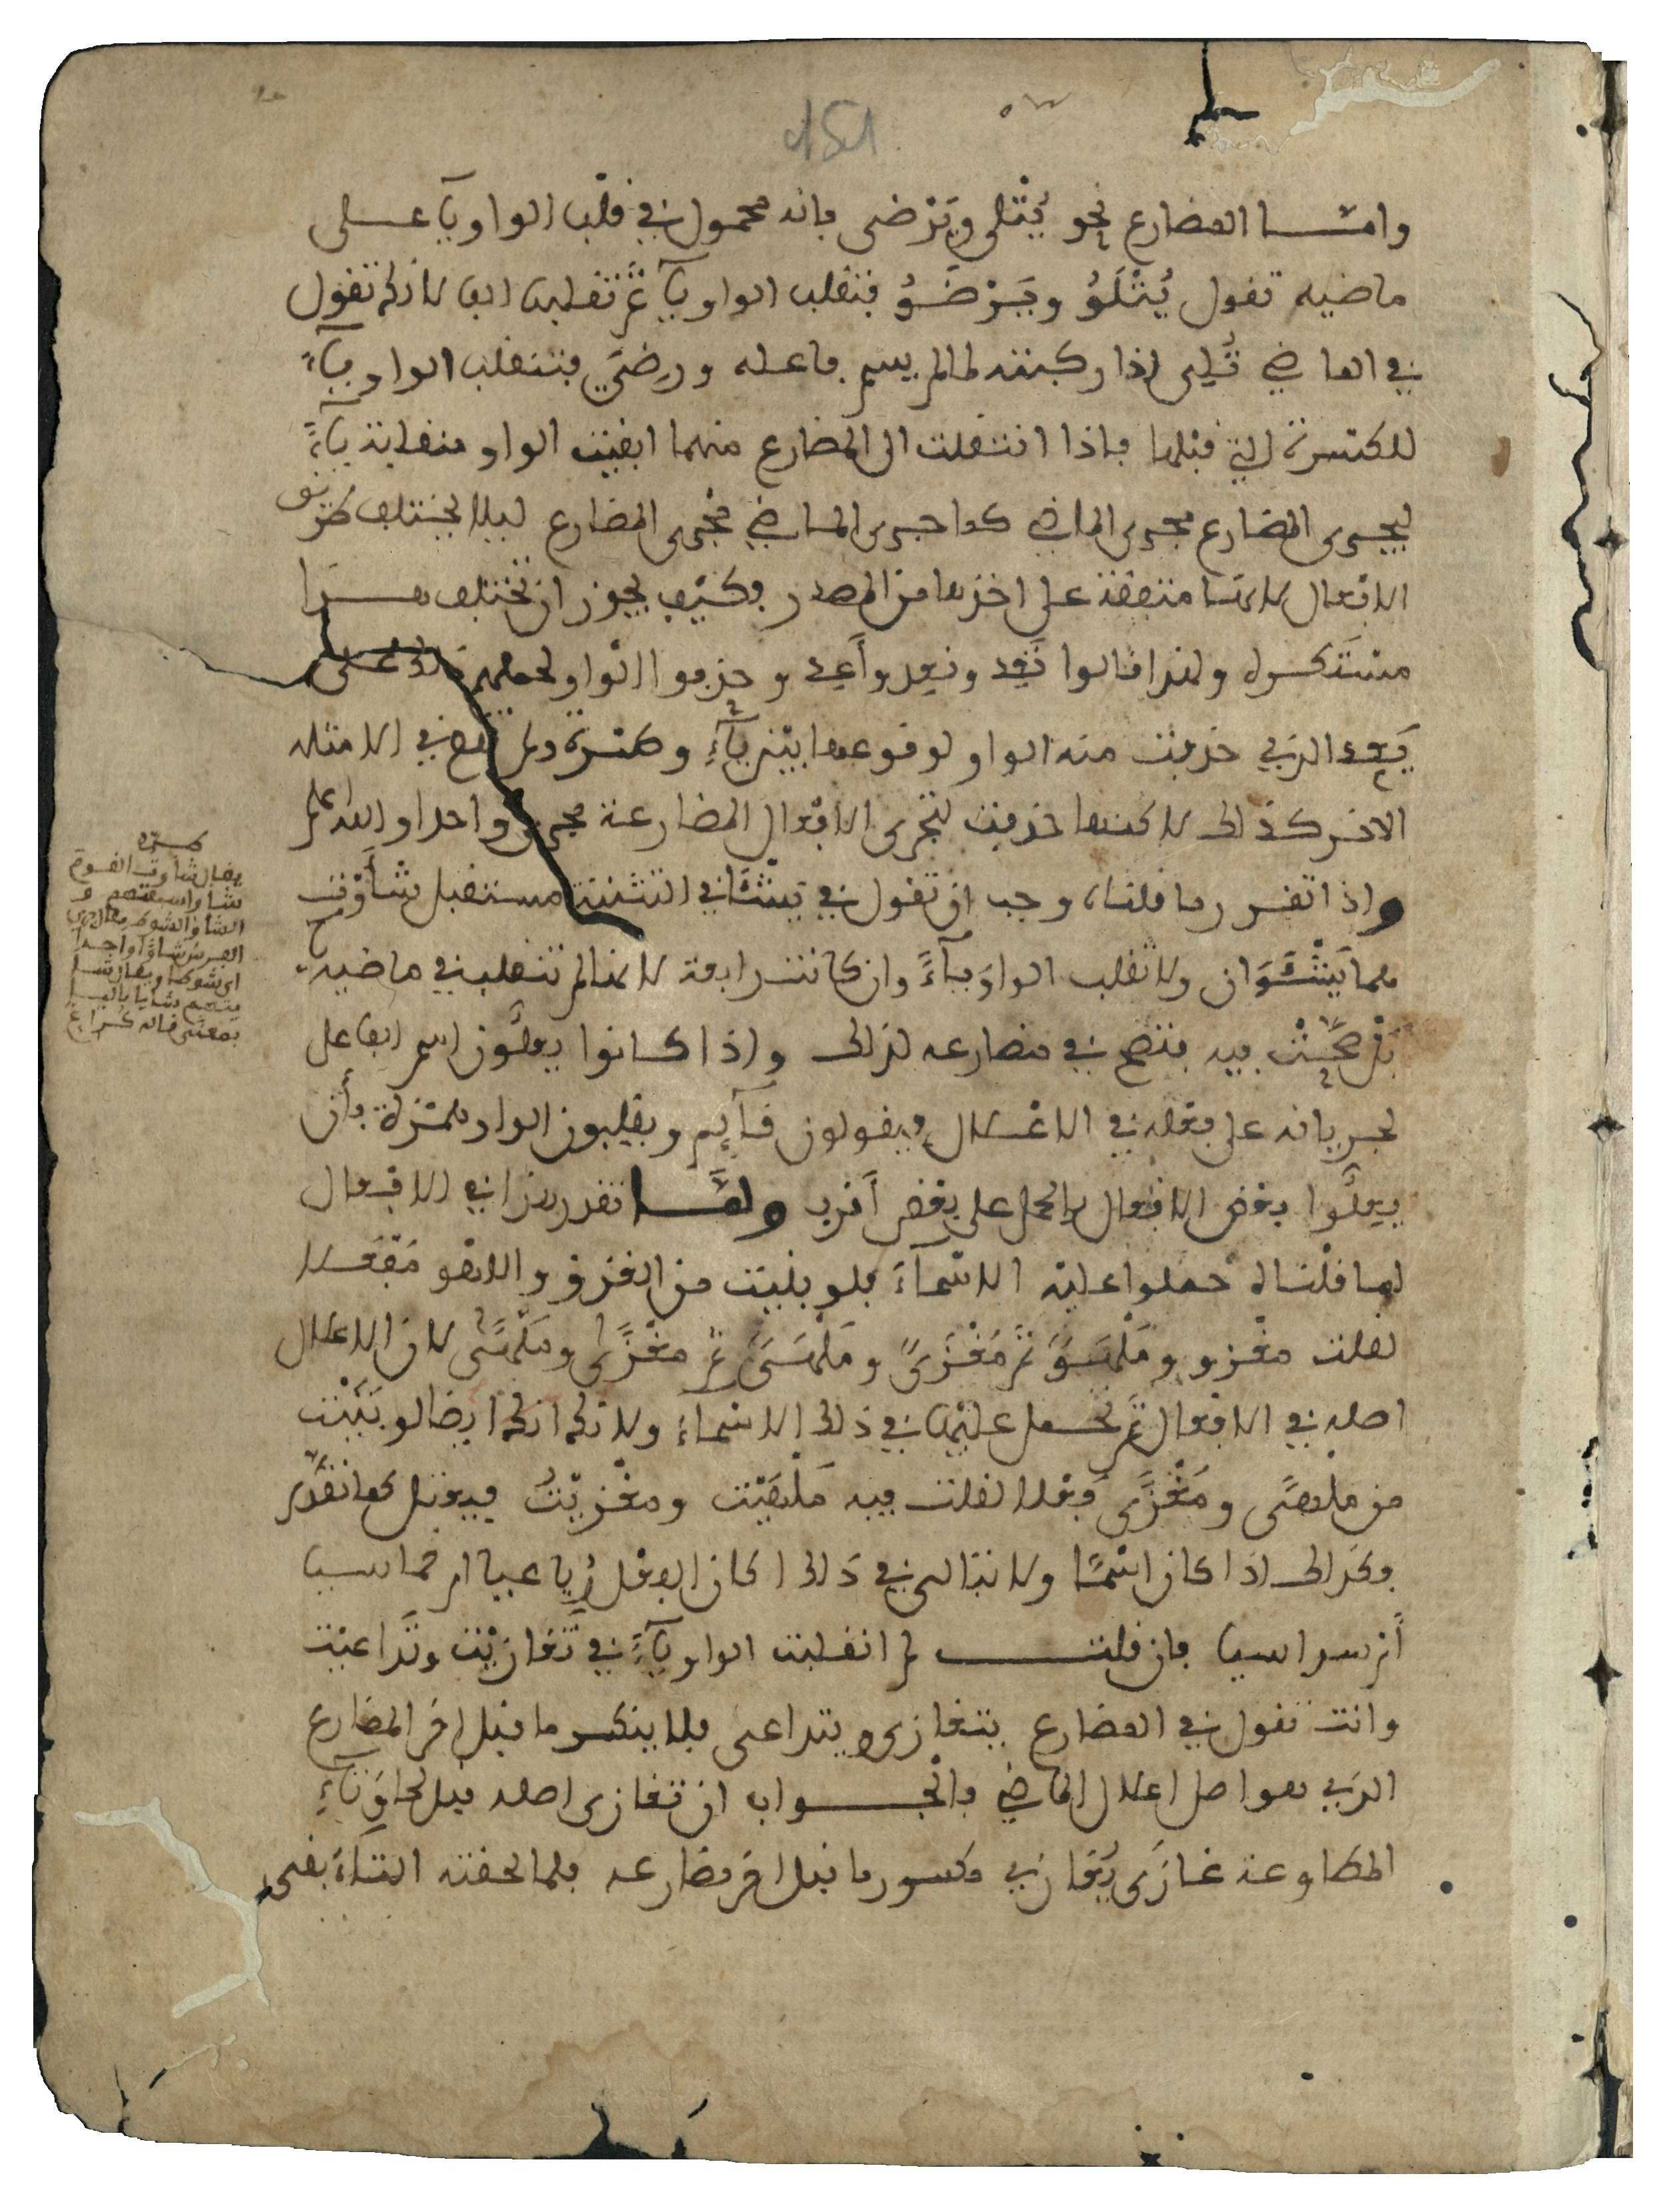 وامّا المضارع نحو يُتْلى ويَرْضى فانه محمول في قلب الواو يآء على
ماضيه تقول يُتْلَوُ ويَرْضَوُ فتقلب الواو يآءً ثم تقلبها الفا لانك تقول
في الماضي تُلِيَ اذا ركبته لما لم يسم فاعله ورَضِيَ فتنقلب الواو يآءً
للكسرة التي قبلها فاذا انتقلت الى المضارع منهما ابقيت الواو منقلبة يآءً
ليجري المضارع مجرى الماضي كما جرى الماضي مجرى المضارع ليلا يختلف طريق
الافعال لانها متفقة على اخذها من المصدر وكيف يجوز ان تختلف هذا
مستنكر ولهذا قالوا تَعِد ونعد وأعد وحذفوا الواو لحملهم ذلك على
يَعِد الذي حذفت منه الواو لوقوعها بين يآءٍ وكسرة ولم تقع في الامثلة
الاخر كذلك لاكنها حذفت لتجري الافعال المضارعة مجرى واحدا والله اعلم
واذا تقرر ما قلناه وجب ان تقول في يَشْئَا في التثنية مستقبل شَأَوْت
هما يَشْئَوَان ولا تقلب الواوَ يآءً وان كانت رابعة لانها لم تنقلب في ماضيه
فصحّتْ فيه فتصح في مضارعه لذلك واذا كانوا يعلّون اسم الفاعل
لجريانه على فعله في الاعتلال فيقولون قآيم ويقلبون الواو همزة فأن
يعلّوا بعض الافعال بالحمل على بعض أقرب ولمّا تقرر هذا في الافعال
لما قلناه حملوا عليه الاسمآء فلو بنيت من الغزو واللهو مفعلا
لقلت مغزو ومَلْهَوٌ ثم مَغْزَيٌ ومَلْهَيٌ ثم مَغْزًى ومَلْهًى لان الاعلال
اصله في الافعال ثم تحمل عليها في ذلك الاسماء ولا ترى انك ايضا لو بَنَيْت
من ملهًى ومَغْزًى فعلا لقلت فيه مَلْهَيْت ومَغْزَيْتُ فيعتل كما تقدّم
فكذلك اذا كان اسْمًا ولا تبالي في ذلك اكان الفعل رُباعيا ام خماسيا
أم سداسيا فان قلت لم انقلبت الواو يآءً في تَغازَيْت وتَداعيْت
وانت تقول في المضارع يتغازى ويتداعى فلا ينكسر ما قبل اخر المضارع
الذي هو اصل اعلال الماضي فالجواب ان تغازى اصله قبل لحاق تآءِ
المطاوعة غازَى يُغازي مكسور ما قبل اخر مضارعه فلما لحقته التاءُ بقي
يقال شأوت القوم
شأوا سبقتهم و
الشأو الشوط يقال جرى
الفرس شأوًا واحدا
اي شوطا ويقال شأ
يتهم شايا باليا
بمعنى قاله كراع